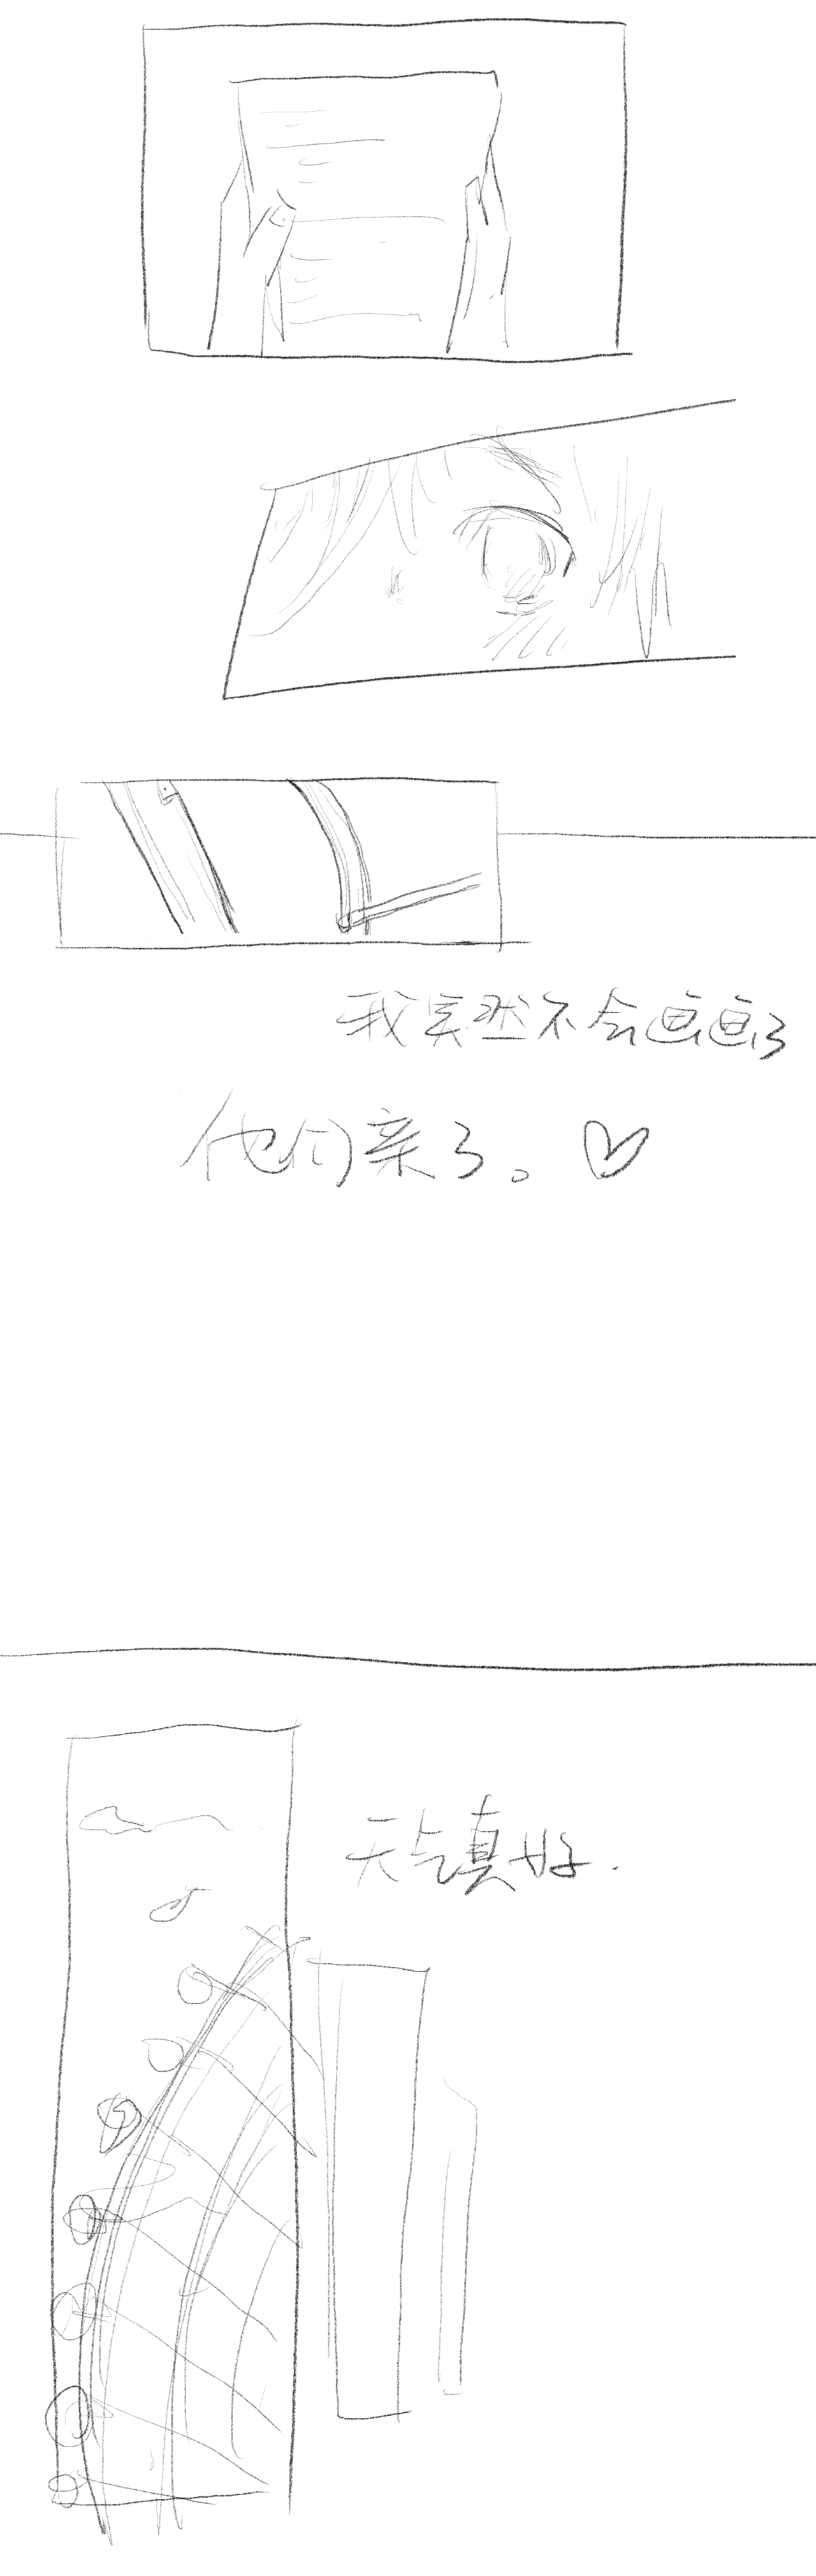 我突然不会画画了
他们亲了。♡
天气真好.